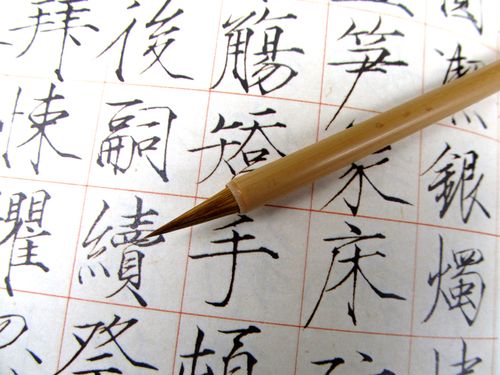 潔銀燭
笋象床
觴矯手頓
後嗣續祭
拜悚懼